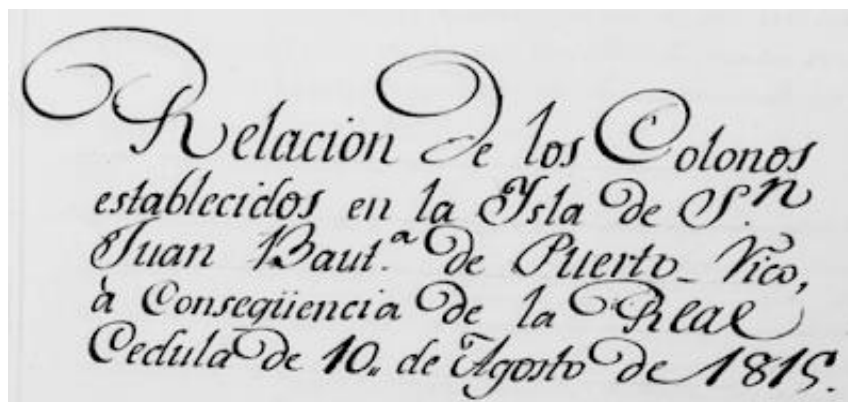 Relacion de los Colonos
establecidos en la Ysla de S.n
Juan Baut.a de Puerto-Rico,
à Conseqüencia de la Real
Cedula de 10,, de Agosto de 1815.